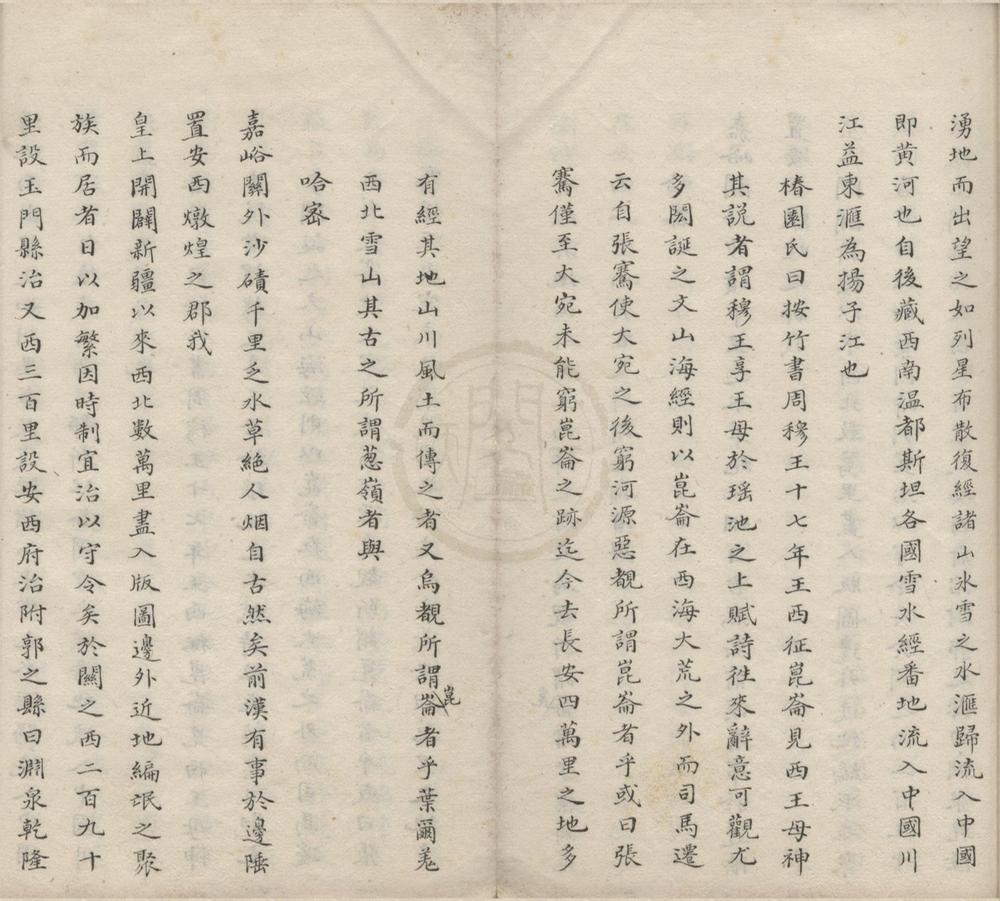 湧地而出望之如列星布散復經諸山氷雪之水滙歸流入中國
即黄河也自後藏西南温都斯坦各國雪水經番地流入中國川
江益東滙為揚子江也
椿園氏曰按竹書周穆王十七年王西征崑崙見西王母神
其說者謂穆王享王母於瑶池之上賦詩徃來辭意可觀尤
多閎誕之文山海經則以崑崙在西海大荒之外而司馬遷
云自張騫使大宛之後窮河源惡覩所謂崑崙者乎或曰張
騫僅至大宛未能窮崑崙之跡迄今去長安四萬里之地多
有經其地山川風土而傳之者又烏覩所謂崑崙者乎葉爾羌
西北雪山其古之所謂葱嶺者與
哈密
嘉峪關外沙磧千里乏水草絶人烟自古然矣前漢有事於邊陲
置安西燉煌之郡我
皇上開闢新疆以來西北數萬里盡入版圖邊外近地編氓之聚
族而居者日以加繁因時制宜治以守令矣於關之西二百九十
里設玉門縣治又西三百里設安西府治附郭之縣曰淵泉乾隆